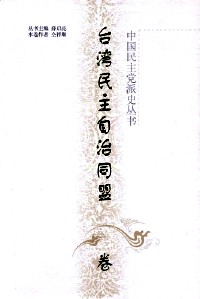 丛书主编 薛启亮
本卷作者 仝祥顺
中国民主党派史丛书
台湾民主自治同盟
卷